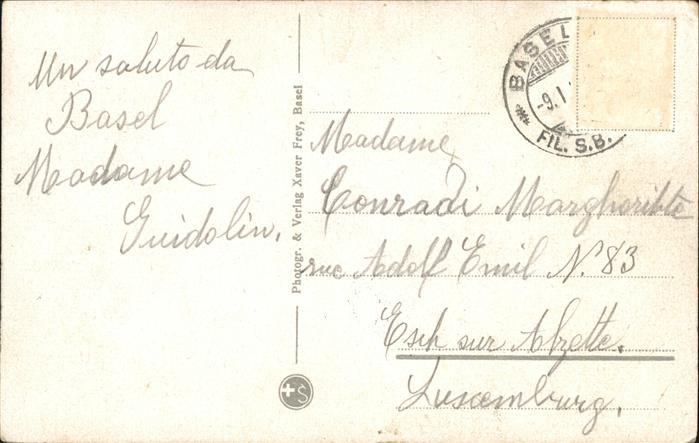 Un saluto da
Basel
Madame
Guidolin.
Photogr. & Verlag Xaver Frey, Basel
S
BASEL
-9.I.
FIL. S.B.
Madame
Conradi Margheritte
rue Adolf Emil N. 83
Esch sur Alzette.
Luxemburg.